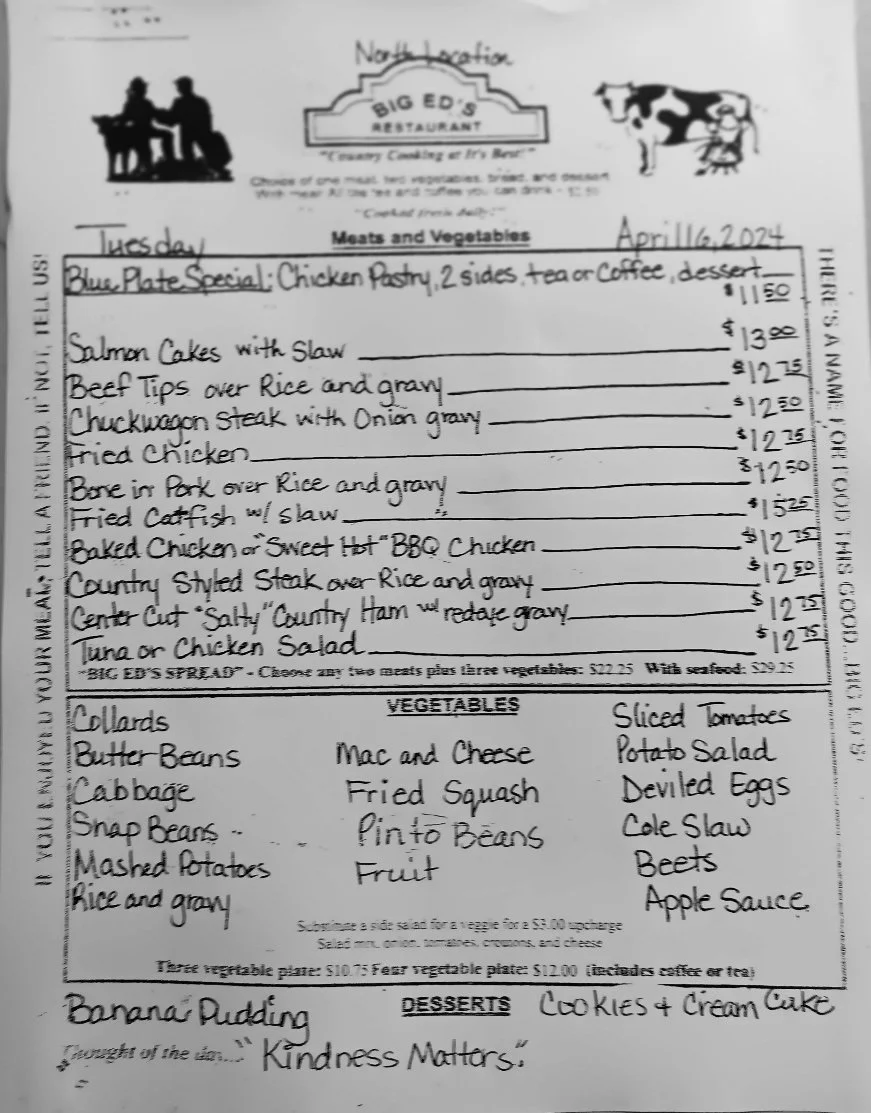 North Location
BIG ED'S
RESTAURANT
"Country Cooking at It's Best!"
Choice of one meat, two vegetables, bread, and dessert
With meal All the tea and coffee you can drink -
"Cooked fresh daily!"
Tuesday Meats and Vegetables April 16, 2024
Blue Plate Special: Chicken Pastry, 2 sides, tea or Coffee, dessert
$11 50
Salmon Cakes with Slaw $13 00
Beef Tips over Rice and gravy $12 75
Chuckwagon Steak with Onion gravy $12 50
Fried Chicken $12 75
Bone in Pork over Rice and gravy $12 50
Fried Catfish w/ slaw $15 25
Baked Chicken or "Sweet Hot" BBQ Chicken $12 75
Country Styled Steak over Rice and gravy $12 50
Center Cut "Salty" Country Ham w/ redeye gravy $12 75
Tuna or Chicken Salad $12 75
"BIG ED'S SPREAD" - Choose any two meats plus three vegetables: $22.25 With seafood: $29.25
VEGETABLES
Collards Sliced Tomatoes
Butter Beans Mac and Cheese Potato Salad
Cabbage Fried Squash Deviled Eggs
Snap Beans Pinto Beans Cole Slaw
Mashed Potatoes Fruit Beets
Rice and gravy Apple Sauce
Substitute a side salad for a veggie for a $3.00 upcharge
Salad mix, onion, tomatoes, croutons, and cheese
Three vegetable plate: $10.75 Four vegetable plate: $12.00 (includes coffee or tea)
Banana Pudding DESSERTS Cookies + Cream Cake
Thought of the day... "Kindness Matters."
IF YOU ENJOYED YOUR MEAL, TELL A FRIEND. IF NOT, TELL US!
THERE'S A NAME FOR FOOD THIS GOOD... BIG ED'S